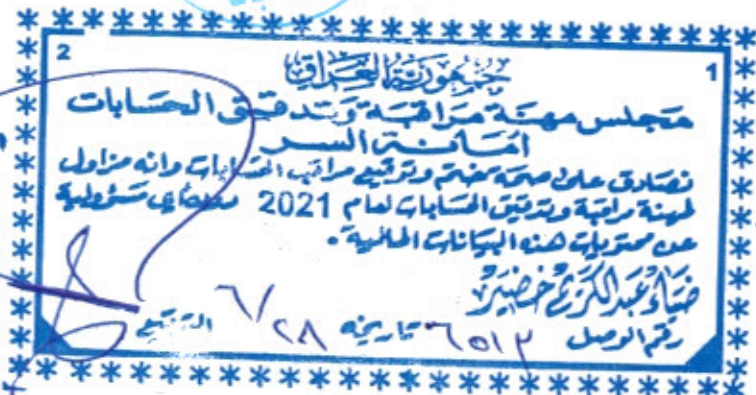 2
1
جمهورية العراق
مجلس مهنة مراقبة وتدقيق الحسابات
أمانة السر
نصادق على صحة ختم وتوقيع مراقب الحسابات وانه مزاول
لمهنة مراقبة وتدقيق الحسابات لعام 2021 مسؤولية
عن محتويات هذه البيانات المالية.
ضياء عبدالكريم خضير
رقم الوصل ٦٥١٣ تاريخه ٦/٢٨ التوقيع